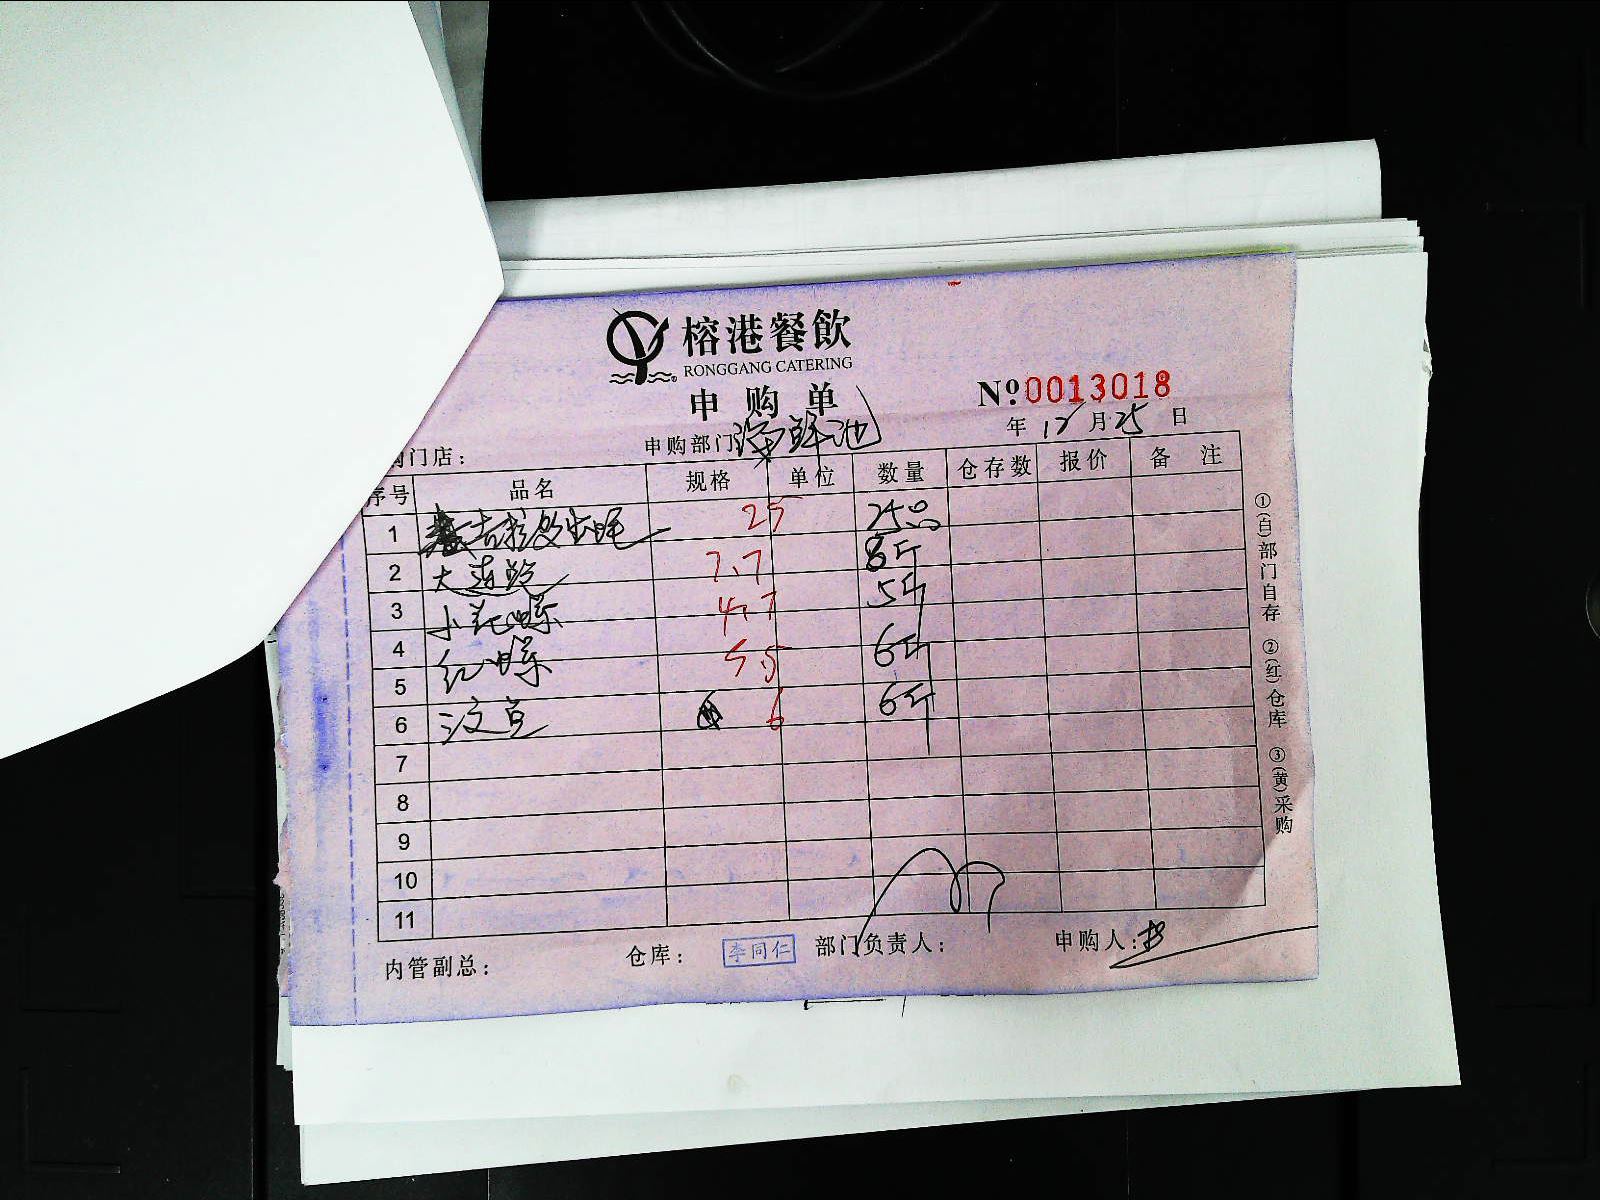 榕港餐飲
RONGGANG CATERING
申购单
Nº 0013018
年 12 月 25 日
申购部门 海鲜池
门店：
序号 品名 规格 单位 数量 仓存数 报价 备注
1 吉拉多生蚝 25 25只
2 大连鲍 7.7 8斤
3 小花螺 4.7 5斤
4 红螺 5.5 6斤
5
6 6 6斤
7
8
9
10
11
内管副总： 仓库： 李同仁 部门负责人： 申购人：
①(白)部门自存 ②(红)仓库 ③(黄)采购